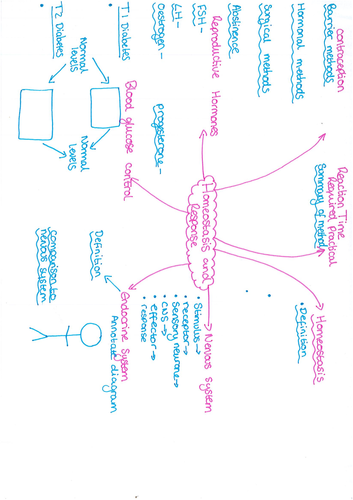 Homeostasis and
Response
Reaction Time
Required practical
Summary of method
Homeostasis
• Definition
•
•
→ Nervous system
• Stimulus →
• receptor →
• sensory neurone →
• CNS →
• effector →
• response
Endocrine System
Annotate diagram
Definition
Comparison to
nervous system
Blood glucose control
Normal
levels
Normal
levels
• T1 Diabetes
• T2 Diabetes
Reproductive Hormones
FSH-
LH-
Oestrogen-
progesterone-
contraception
Barrier methods
Hormonal methods
Surgical methods
Abstinence